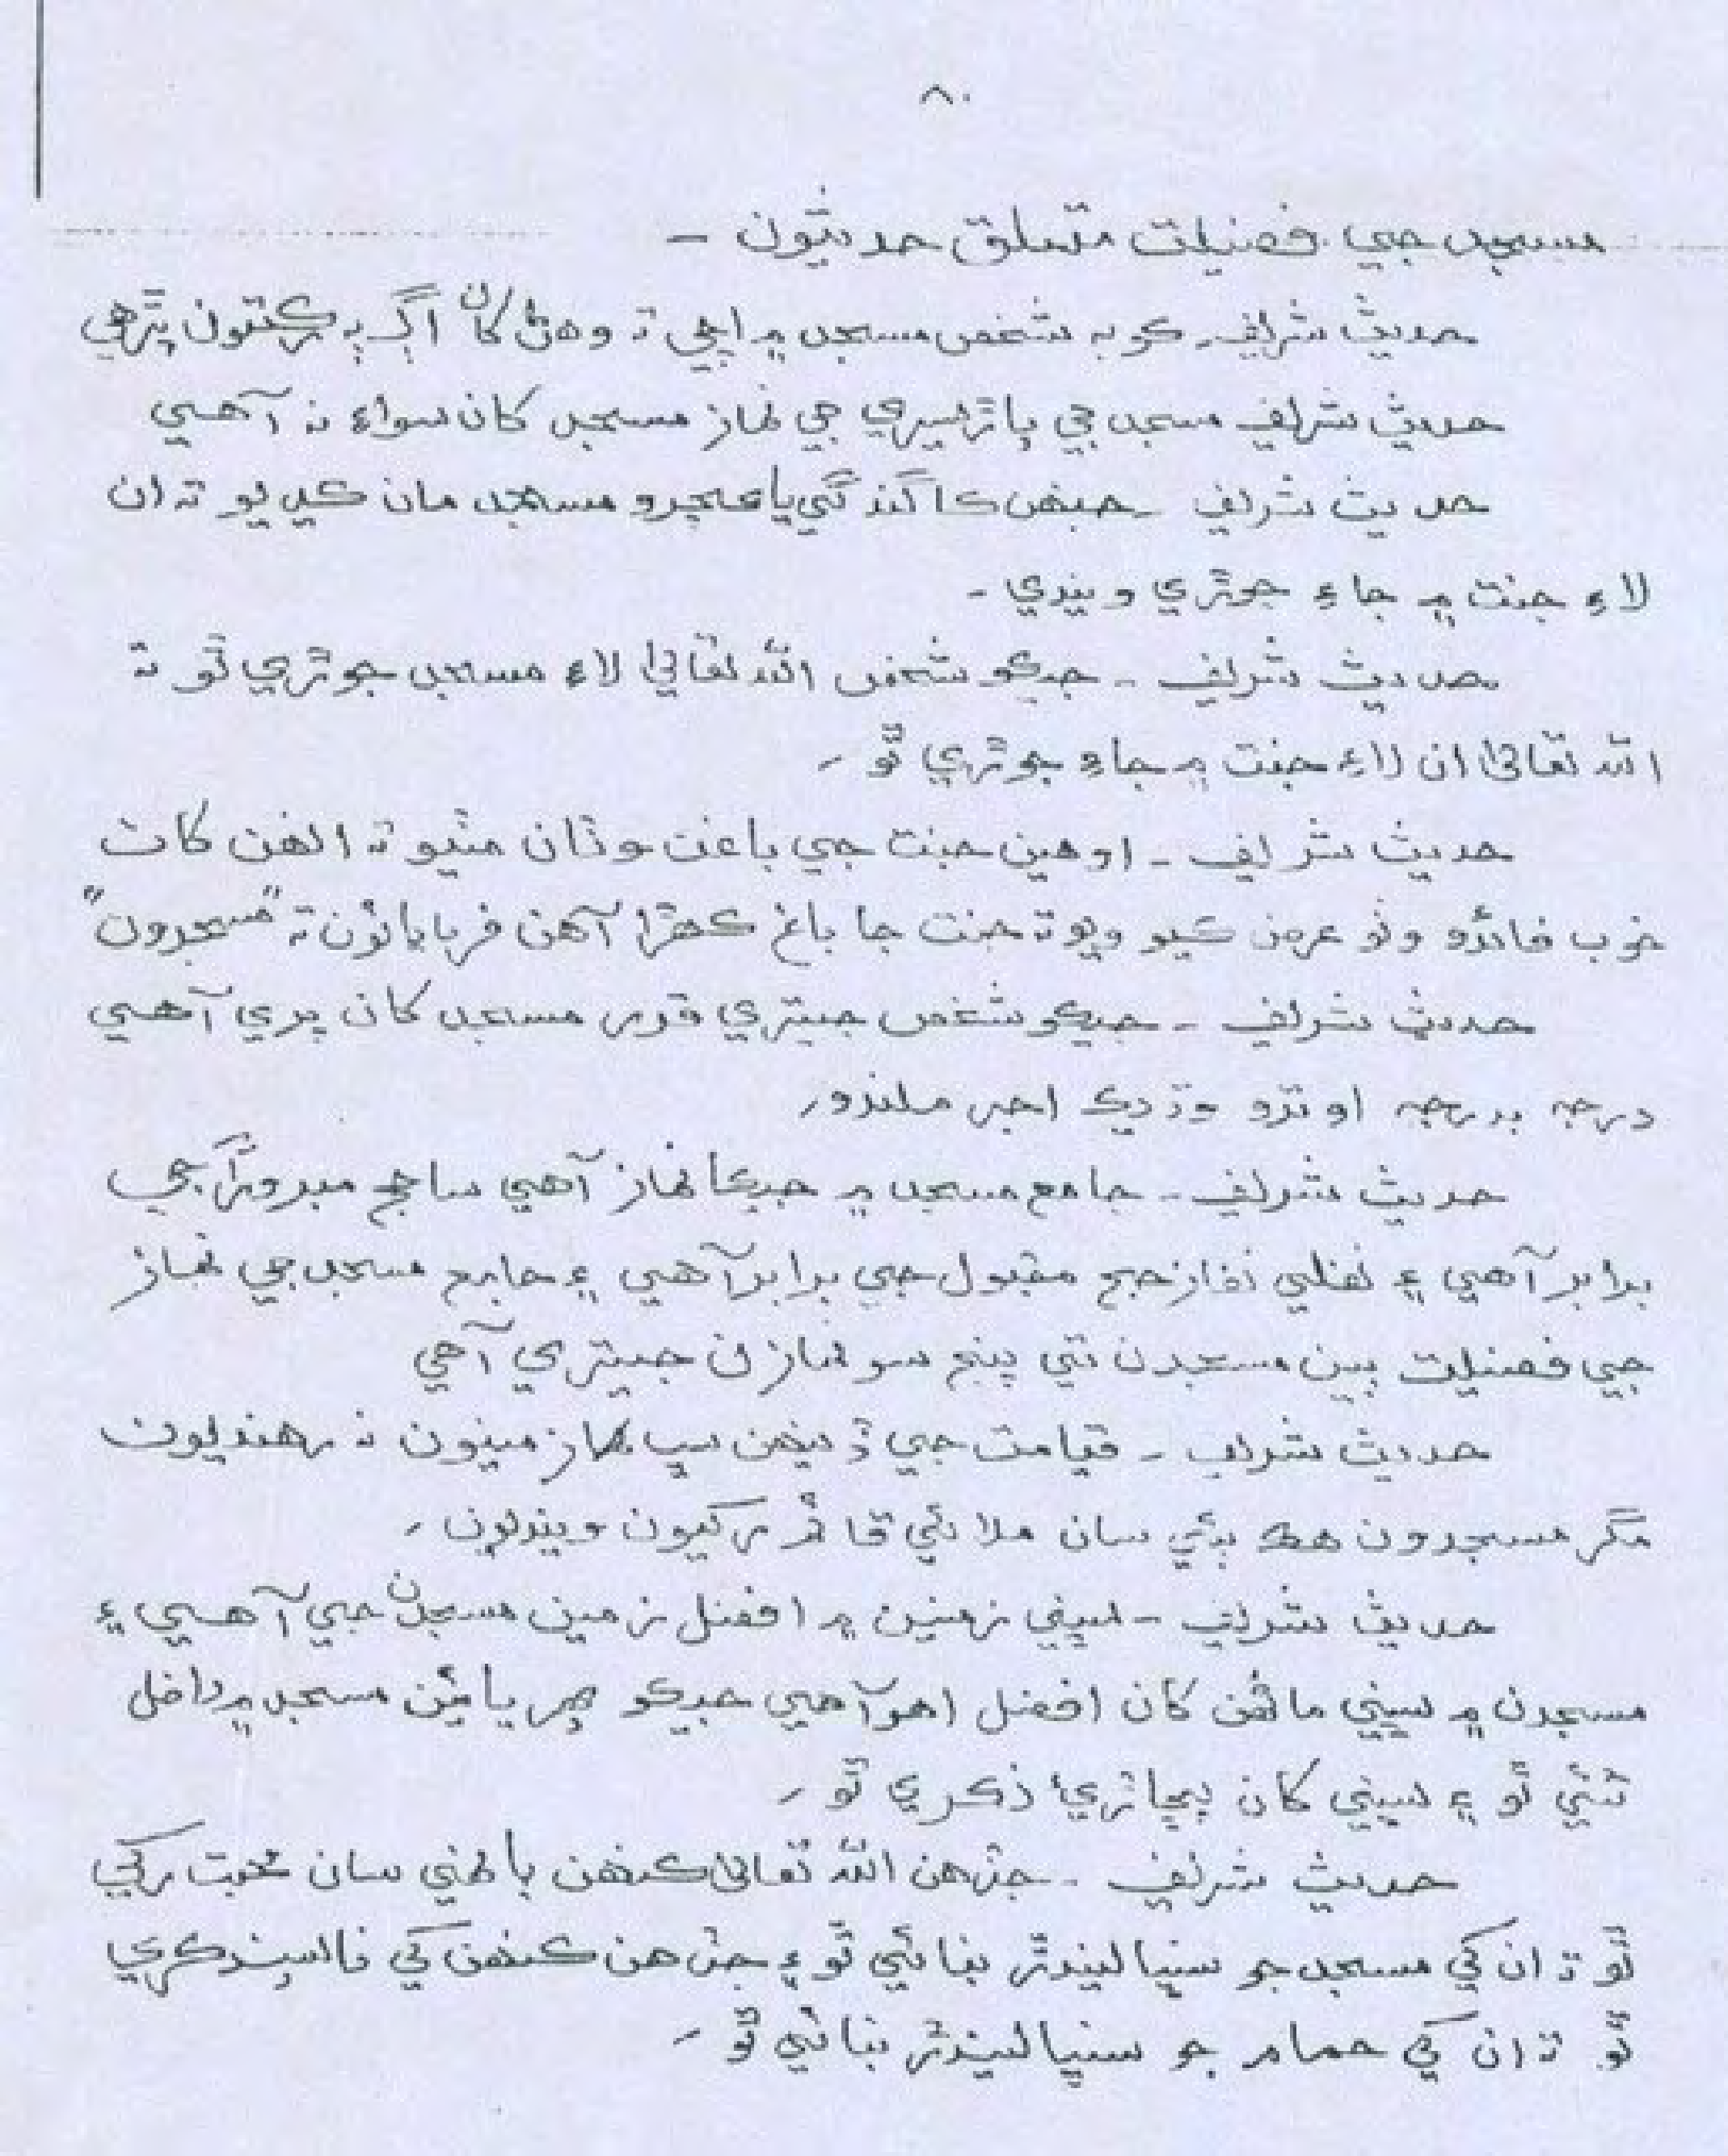 ۸۰
مسجد جي فضيلت متعلق حديثون -
حديث شريف۔ ڪو به شخص مسجد ۾ اچي ته وهڻ کان اڳ ٻه رڪعتون پڙهي
حديث شريف مسجد جي پاڙيسري جي نماز مسجد کان سواءِ نه آهي
حديث شريف - جنهن ڪا گندگي يا ڪچرو مسجد مان ڪڍيو ته ان
لاءِ جنت ۾ جاءِ جوڙي ويندي -
حديث شريف - جيڪو شخص الله تعاليٰ لاءِ مسجد جوڙي ٿو ته
الله تعاليٰ ان لاءِ جنت ۾ جاءِ جوڙي ٿو ۔
حديث شريف - اوهين جنت جي باغن وٽان لنگهو ته انهن کان
خوب فائدو وٺو عرض ڪيو ويو ته جنت جا باغ ڪهڙا آهن فرمايائون ته "مسجدون"
حديث شريف - جيڪو شخص جيتري قدر مسجد کان پري آهي
درجه بدرجه اوترو وڌيڪ اجر ملندو۔
حديث شريف - جامع مسجد ۾ جيڪا نماز آهي سا حج مبرور جي
برابر آهي ۽ نفلي نماز حج مقبول جي برابر آهي ۽ جامع مسجد جي نماز
جي فضيلت ٻين مسجدن تي پنج سو نمازن جيتري آهي
حديث شريف - قيامت جي ڏينهن سڀ زمينون نه رهنديون
مگر مسجدون هڪ ٻئي سان ملائي قائم ڪيون وينديون ۔
حديث شريف - سڀني زمينن ۾ افضل زمين مسجدن جي آهي ۽
مسجدن ۾ سڀني ماڻهن کان افضل اهو آهي جيڪو پهريائين مسجد ۾ داخل
ٿئي ٿو ۽ سڀني کان پڇاڙيءَ نڪري ٿو ۔
حديث شريف - جڏهن الله تعاليٰ ڪنهن ٻانهي سان محبت رکي
ٿو ته ان کي مسجد جو سنڀاليندڙ بنائي ٿو ۽ جڏهن ڪنهن کي ناپسند ڪري
ٿو ته ان کي حمام جو سنڀاليندڙ بنائي ٿو ۔